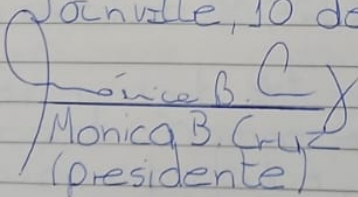 Joinville, 10 de
Mônica B. C
Monica B. Cruz
(presidente)